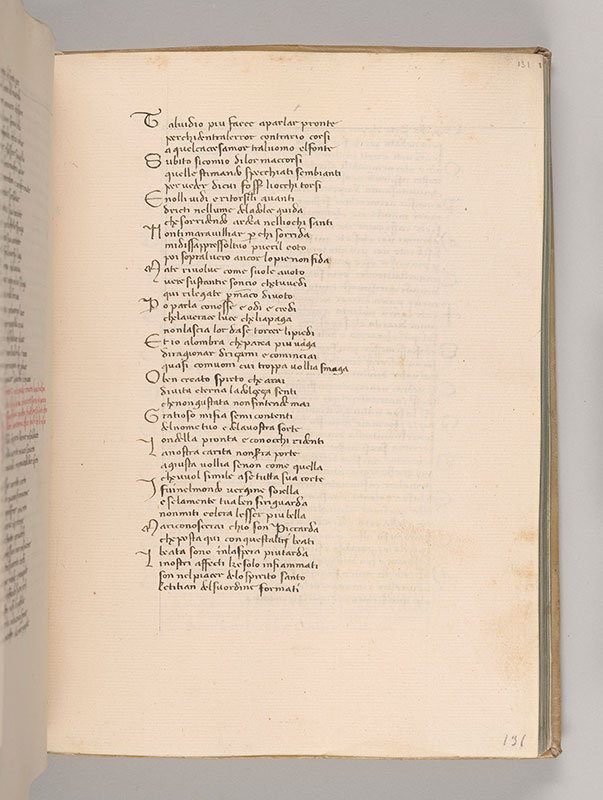 131
Taluidio piu facce aparlar pronte
perchidentralerror contrario corsi
aquelcacesamor traluomo elfonte
Subito sicomio dilor maccorsi
quelle stimando specchiati sembianti
per veder dicui fosser liocchi torsi
Enolli uidi e ritorsili auanti
dricti nellume deladolce guida
che sorridendo ardea nelliochi santi
Nontimarauilliar perchi sorrida
midissappressoltuo pueril coto
poi sopraluero ancor lopie nonfida
Mate riuolue come suole auoto
uere sustantie soncio chetuuedi
qui rilegate per manco diuoto
Po parla conesse e odi e credi
chelauerace luce cheliapaga
nonlascia lor dase torcer lipiedi
Et io alombra cheparea piu uaga
diragionar drigami e cominciai
quasi comuoni cui troppa uollia smaga
O ben creato spirto che arai
diuita eterna ladolceça senti
chenongustata nonsintende mai
Gratioso mifia semi contenti
delnome tuo e delauostra sorte
Iondella pronta e conocchi ridenti
Lanostra carita nonserra porte
agiusta uollia senon come quella
cheuuol simile ase tutta sua corte
I fuinelmondo uergine sorella
e selamente tuaben siriguarda
nonmiti celera lesser piubella
Mariconoscerai chio son Piccarda
cheposta qui conquestaltri beati
beata sono inlaspera piutarda
Inostri affecti ke solo infiammati
son nelpiacer delo spirito santo
letitian delsuordine formati
131